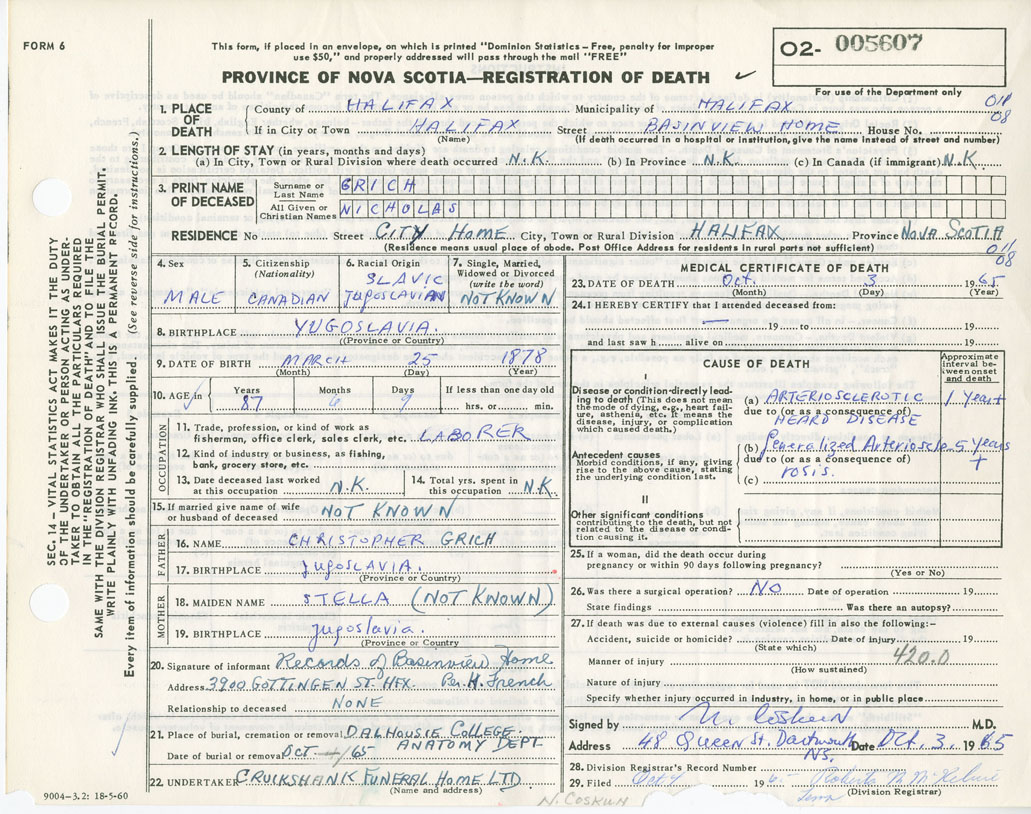 FORM 6
This form, if placed in an envelope, on which is printed "Dominion Statistics – Free, penalty for improper
use $50," and properly addressed will pass through the mail "FREE"
PROVINCE OF NOVA SCOTIA—REGISTRATION OF DEATH ✓
O2- 005607
For use of the Department only
1. PLACE OF DEATH
County of HALIFAX Municipality of HALIFAX
If in City or Town HALIFAX Street BASINVIEW HOME House No.
(Name) (If death occurred in a hospital or institution, give the name instead of street and number)
2. LENGTH OF STAY (in years, months and days)
(a) In City, Town or Rural Division where death occurred N.K. (b) In Province N.K. (c) In Canada (if immigrant) N.K.
3. PRINT NAME OF DECEASED
Surname or Last Name GRICH
All Given or Christian Names NICHOLAS
RESIDENCE No Street CITY HOME City, Town or Rural Division HALIFAX Province NOVA SCOTIA
(Residence means usual place of abode. Post Office Address for residents in rural parts not sufficient)
08
08
4. Sex
MALE
5. Citizenship
(Nationality)
CANADIAN
6. Racial Origin
SLAVIC
Jugoslavian
7. Single, Married,
Widowed or Divorced
(write the word)
NOT KNOWN
8. BIRTHPLACE YUGOSLAVIA.
((Province or Country)
9. DATE OF BIRTH MARCH 25 1878
(Month) (Day) (Year)
10. AGE in Years Months Days If less than one day old
87 6 9 hrs. or min.
OCCUPATION
11. Trade, profession, or kind of work as
fisherman, office clerk, sales clerk, etc. LABORER
12. Kind of industry or business, as fishing,
bank, grocery store, etc.
13. Date deceased last worked
at this occupation N.K.
14. Total yrs. spent in
this occupation N.K
15. If married give name of wife
or husband of deceased NOT KNOWN
FATHER
16. NAME CHRISTOPHER GRICH
17. BIRTHPLACE Jugoslavia.
(Province or Country)
MOTHER
18. MAIDEN NAME STELLA (NOT KNOWN)
19. BIRTHPLACE Jugoslavia.
(Province or Country)
20. Signature of informant Records of Basinview Home
Address 3900 GOTTINGEN ST. HFX. Per. H. French
Relationship to deceased NONE
21. Place of burial, cremation or removal DALHOUSIE COLLEGE
ANATOMY DEPT
Date of burial or removal OCT /65
22. UNDERTAKER CRUIKSHANK FUNERAL HOME LTD.
(Name and address)
9004–3.2: 18-5-60
MEDICAL CERTIFICATE OF DEATH
23. DATE OF DEATH Oct. 3 1965
(Month) (Day) (Year)
24. I HEREBY CERTIFY that I attended deceased from:
— 19 to 19
and last saw h alive on 19
CAUSE OF DEATH
Approximate
interval be-
tween onset
and death
I
Disease or condition directly lead-
ing to death (This does not mean
the mode of dying, e.g., heart fail-
ure, asthenia, etc. It means the
disease, injury, or complication
which caused death.)
(a) ARTERIOSCLEROTIC 1 Year+
due to (or as a consequence of)
HEARD DISEASE
Antecedent causes
Morbid conditions, if any, giving
rise to the above cause, stating
the underlying condition last.
(b) Generalized Arterioscle- 5 years
due to (or as a consequence of) +
rosis.
(c)
II
Other significant conditions
contributing to the death, but not
related to the disease or condi-
tion causing it.
25. If a woman, did the death occur during
pregnancy or within 90 days following pregnancy?
(Yes or No)
26. Was there a surgical operation? NO Date of operation 19
State findings Was there an autopsy?
27. If death was due to external causes (violence) fill in also the following:–
Accident, suicide or homicide? Date of injury 19
(State which)
Manner of injury 420.0
(How sustained)
Nature of injury
Specify whether injury occurred in industry, in home, or in public place
Signed by N. Coskun M.D.
Address 48 Queen St. Dartmouth Date Oct. 3. 1965
NS.
28. Division Registrar's Record Number
29. Filed Oct 4 196
(Division Registrar)
N. COSKUN
SEC. 14 – VITAL STATISTICS ACT MAKES IT THE DUTY
OF THE UNDERTAKER OR PERSON ACTING AS UNDER-
TAKER TO OBTAIN ALL THE PARTICULARS REQUIRED
IN THE "REGISTRATION OF DEATH" AND TO FILE THE
SAME WITH THE DIVISION REGISTRAR WHO SHALL ISSUE THE BURIAL PERMIT.
WRITE PLAINLY WITH UNFADING INK. THIS IS A PERMANENT RECORD.
Every item of information should be carefully supplied. (See reverse side for instructions.)